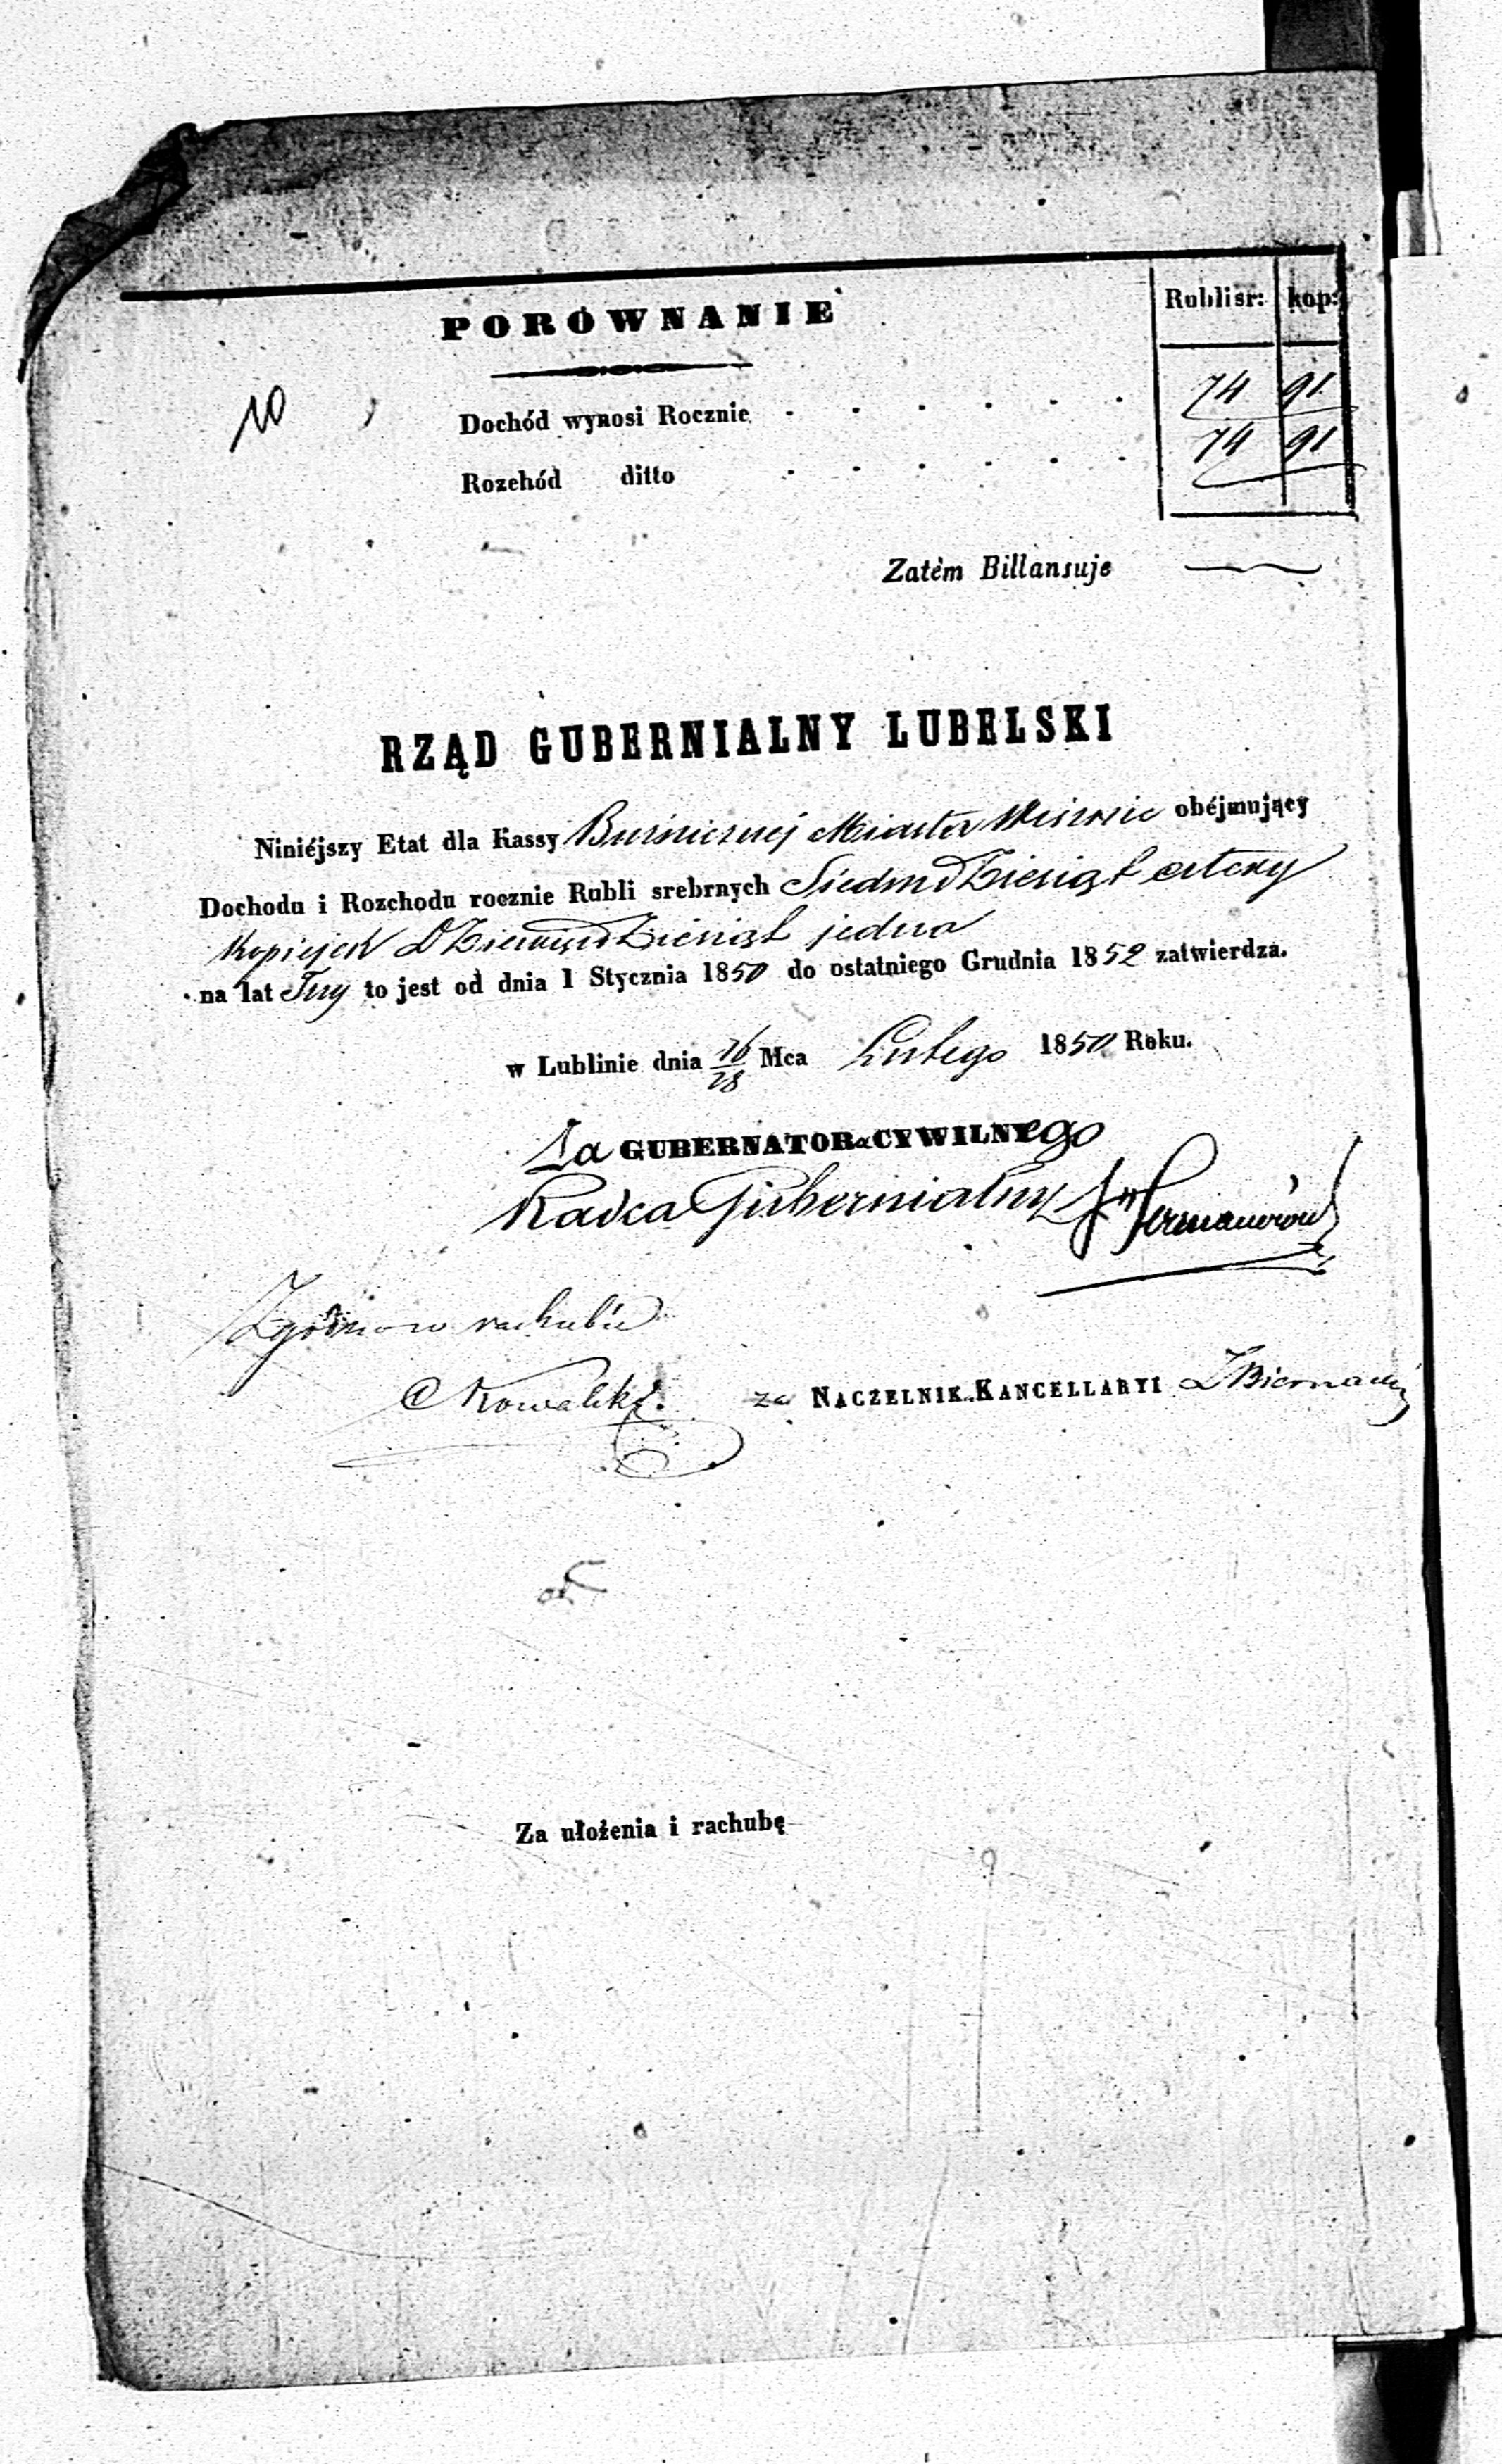 PORÓWNANIE
Rubli sr: kop:
10
Dochód wynosi Rocznie . . . . . . 74 91
Rozchód ditto . . . . . . 74 91
Zatém Billansuje —
RZĄD GUBERNIALNY LUBELSKI
Niniéjszy Etat dla Kassy Buźnicznej Miasta obéjmujący
Dochodu i Rozchodu rocznie Rubli srebrnych Siedmdziesiąt cztery
Kopiejek Dziewięćdziesiąt jedna
na lat Trzy to jest od dnia 1 Stycznia 1850 do ostatniego Grudnia 1852 zatwierdza.
w Lublinie dnia 16/28 Mca Lutego 1850 Roku.
Za GUBERNATORa CYWILNego
Radca Gubernialny
Zgodno w rachubie
Kowalski
za NACZELNIK KANCELLARYI Biernacki
Za ułożenia i rachubę